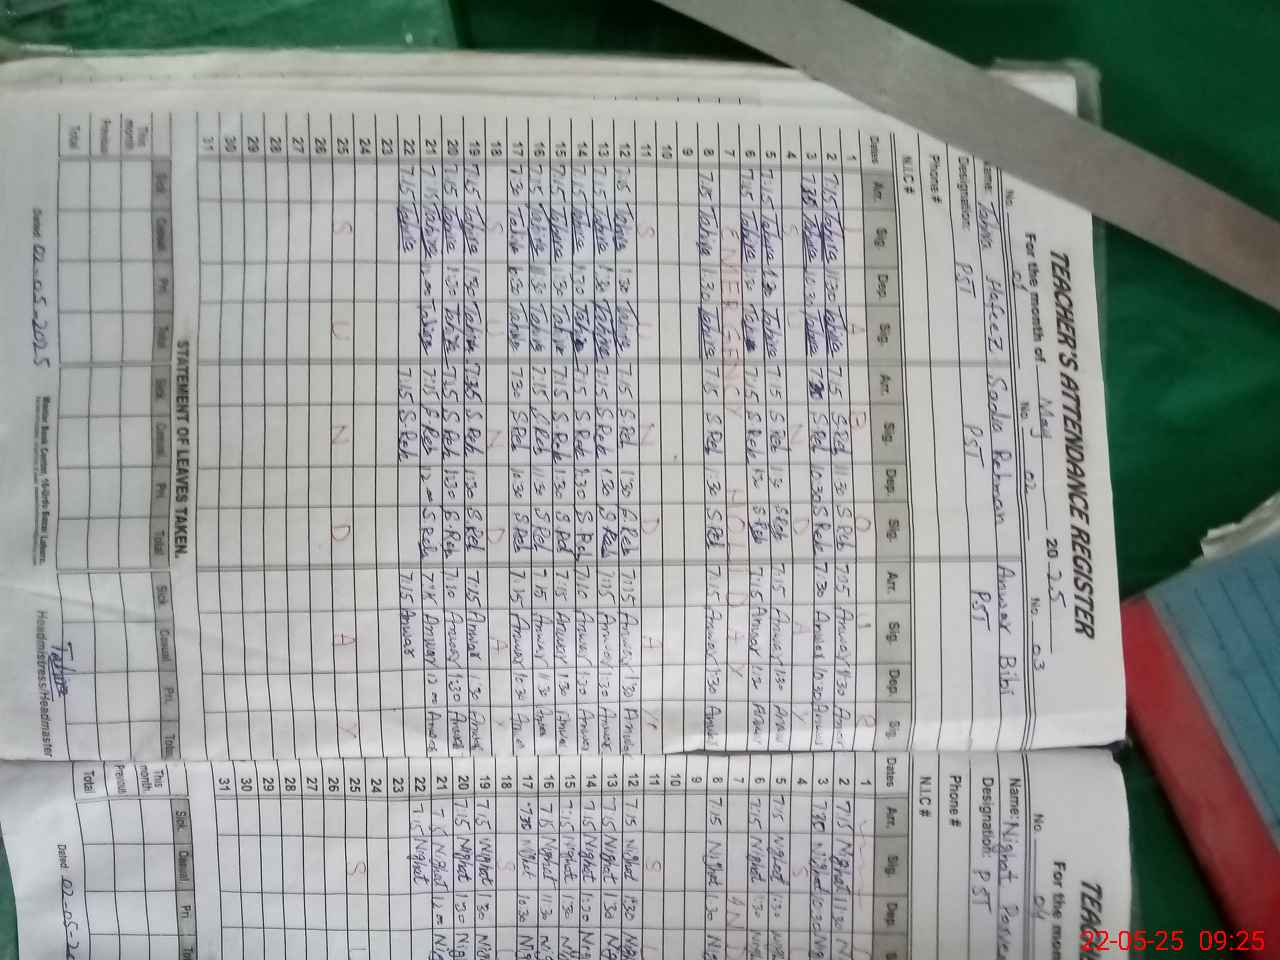 TEACHER'S ATTENDANCE REGISTER
For the month of May 2025
No. 01 No. 02 No. 03
Name: Tahira Hafeez Sadia Rehman Anwar Bibi
Designation: PST PST PST
Phone #
N.I.C #
Dates Arr. Sig. Dep. Sig. Arr. Sig. Dep. Sig. Arr. Sig. Dep. Sig.
1
2 7:15 Tahira 11:30 Tahira 7:15 S Reh 11:30 S Reh Anwar 11:30 Anwar
3 7:30 Tahira 10:30 Tahira 7:30 S Reh 10:30 S Reh 7:30 Anwar 10:30 Anwar
4 S U N D A Y
5 7:15 Tahira 1:30 Tahira 7:15 S Reh 1:30 S Reh 7:15 Anwar 1:30 Anwar
6 7:15 Tahira 1:30 Tahira 7:15 S Reh 1:30 S Reh 7:15 Anwar Anwar
7 EMERGENCY HOLIDAY
8 7:15 Tahira 1:30 Tahira 7:15 S Reh 1:30 S Reh 7:15 Anwar 1:30 Anwar
9
10
11 S U N D A Y
12 7:15 Tahira 1:30 Tahira 7:15 S Reh 1:30 S Reh 7:15 Anwar 1:30 Anwar
13 7:15 Tahira 1:30 Tahira 7:15 S Reh 1:30 S Reh 7:15 Anwar 1:30 Anwar
14 7:15 Tahira 1:30 Tahira 7:15 S Reh 1:30 S Reh 7:10 Anwar 1:30 Anwar
15 7:15 Tahira 1:30 Tahira 7:15 S Reh 1:30 S Reh 7:15 Anwar 1:30 Anwar
16 7:15 Tahira 11:30 Tahira 7:15 S Reh 11:30 S Reh 7:15 Anwar 11:30 Anwar
17 7:30 Tahira 10:30 Tahira 7:30 S Reh 10:30 S Reh Anwar 10:30 Anwar
18 S U N D A Y
19 7:15 Tahira 1:30 Tahira S Reh 1:30 S Reh 7:15 Anwar 1:30 Anwar
20 7:15 Tahira 1:30 Tahira S Reh 1:30 S Reh 7:10 Anwar 1:30 Anwar
21 7:15 Tahira 12:00 Tahira 7:15 S Reh 12:00 S Reh Anwar 12:00 Anwar
22 7:15 Tahira 7:15 S Reh 7:15 Anwar
23
24
25 S U N D A Y
26
27
28
29
30
31
STATEMENT OF LEAVES TAKEN.
Sick Casual Pri. Total Sick Casual Pri. Total Sick Casual Pri. Total
This month
Previous
Total
Dated 02-05-2025 Headmistress/Headmaster
Tahira
For the
No. 04
Name: Nighat
Designation: PST
Phone #
N.I.C #
Dates Arr. Sig. Dep.
1
2 7:15 Nighat 11:30
3 7:30 Nighat 10:30
4 S
5 7:15 Nighat 1:30
6 7:15 Nighat 1:30
7
8 7:15 Nighat 1:30
9
10
11 S
12 7:15 Nighat 1:30
13 7:15 Nighat 1:30
14 7:15 Nighat 1:30
15 7:15 Nighat 1:30
16 7:15 Nighat 11:30
17 7:30 Nighat 10:30
18 S
19 7:15 Nighat 1:30
20 7:15 Nighat 1:30
21 7:15 Nighat 12:00
22 7:15 Nighat
23
24
25 S
26
27
28
29
30
31
Sick Casual Pri.
This month
Previous
Total
Dated 02-05-
22-05-25 09:25